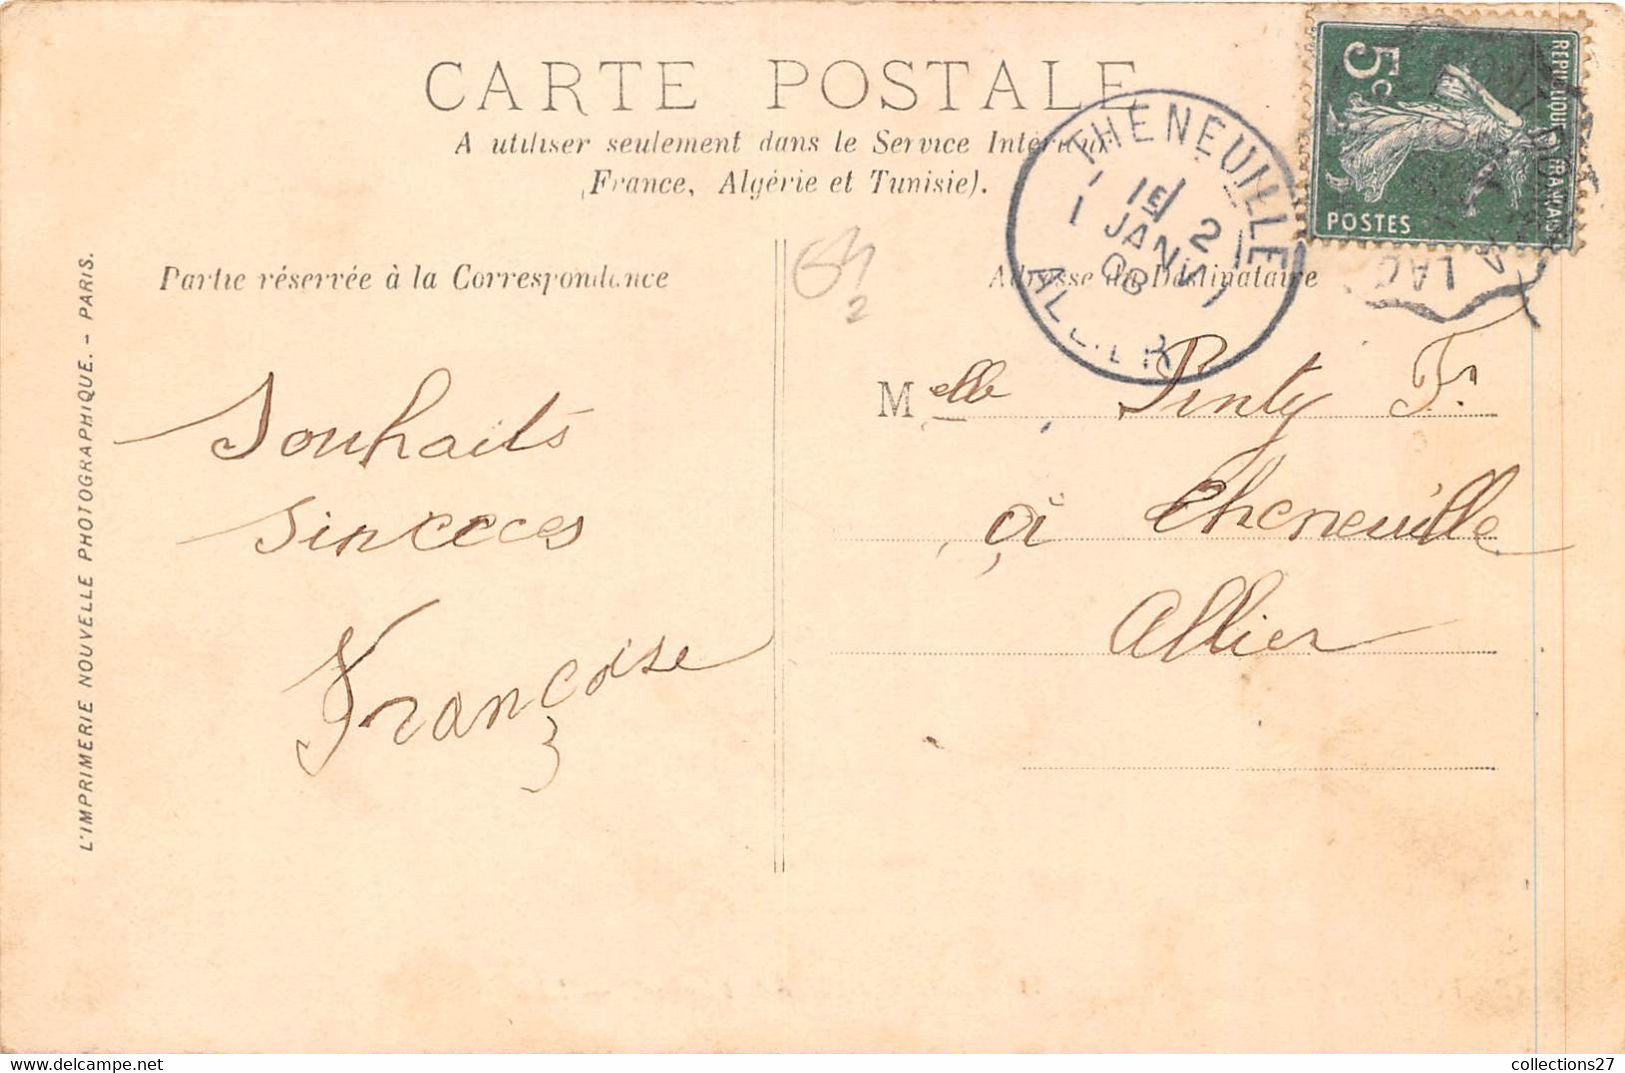 CARTE POSTALE
A utiliser seulement dans le Service Intérieur
(France, Algérie et Tunisie).
Partie réservée à la Correspondance
Adresse du Destinataire
L'IMPRIMERIE NOUVELLE PHOTOGRAPHIQUE. - PARIS.
THENEUILLE
1E/
2
JANV
08
ALLIER
5c
REPUBLIQUE FRANÇAISE
POSTES
LAC
Souhaits
sincères
Françoise
Melle Pinty F.
à Theneuille
Allier
collections27